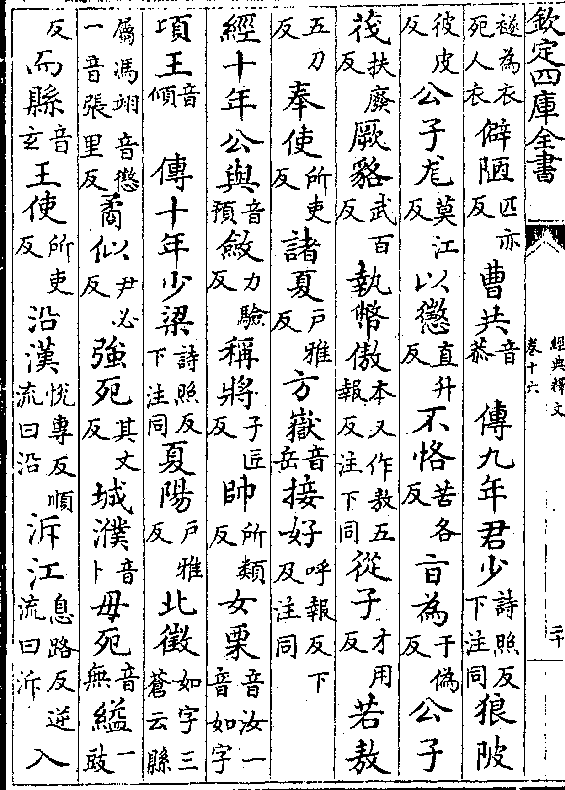 欽定四庫全書
經典釋文
卷十六
二十
襚為衣死人衣僻陋匹亦反曹共音恭傳九年君少詩照反下注同狼陂
彼皮反公子尨莫江反以懲直升反不恪苦各反盲為于偽反公子
茷扶廢反厥貉武百反執幣傲本又作敖五報反注下同從子才用反若敖
五刀反奉使所吏反諸夏戶雅反方嶽音岳接好呼報反下及注同
經十年公與音預斂力驗反稱將子匠反帥所類反女栗音汝一音如字
項王音傾傳十年少梁詩照反下注同夏陽戶雅反北徵如字三蒼云縣
屬馮翊音懲一音張里反矞似尹必反強死其丈反城濮音卜毋死音無縊一豉
反而縣音玄王使所吏反沿漢悅專反順流曰沿泝江息路反逆流曰泝入